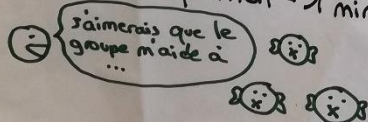 1 min
J'aimerais que le
groupe m'aide à
...